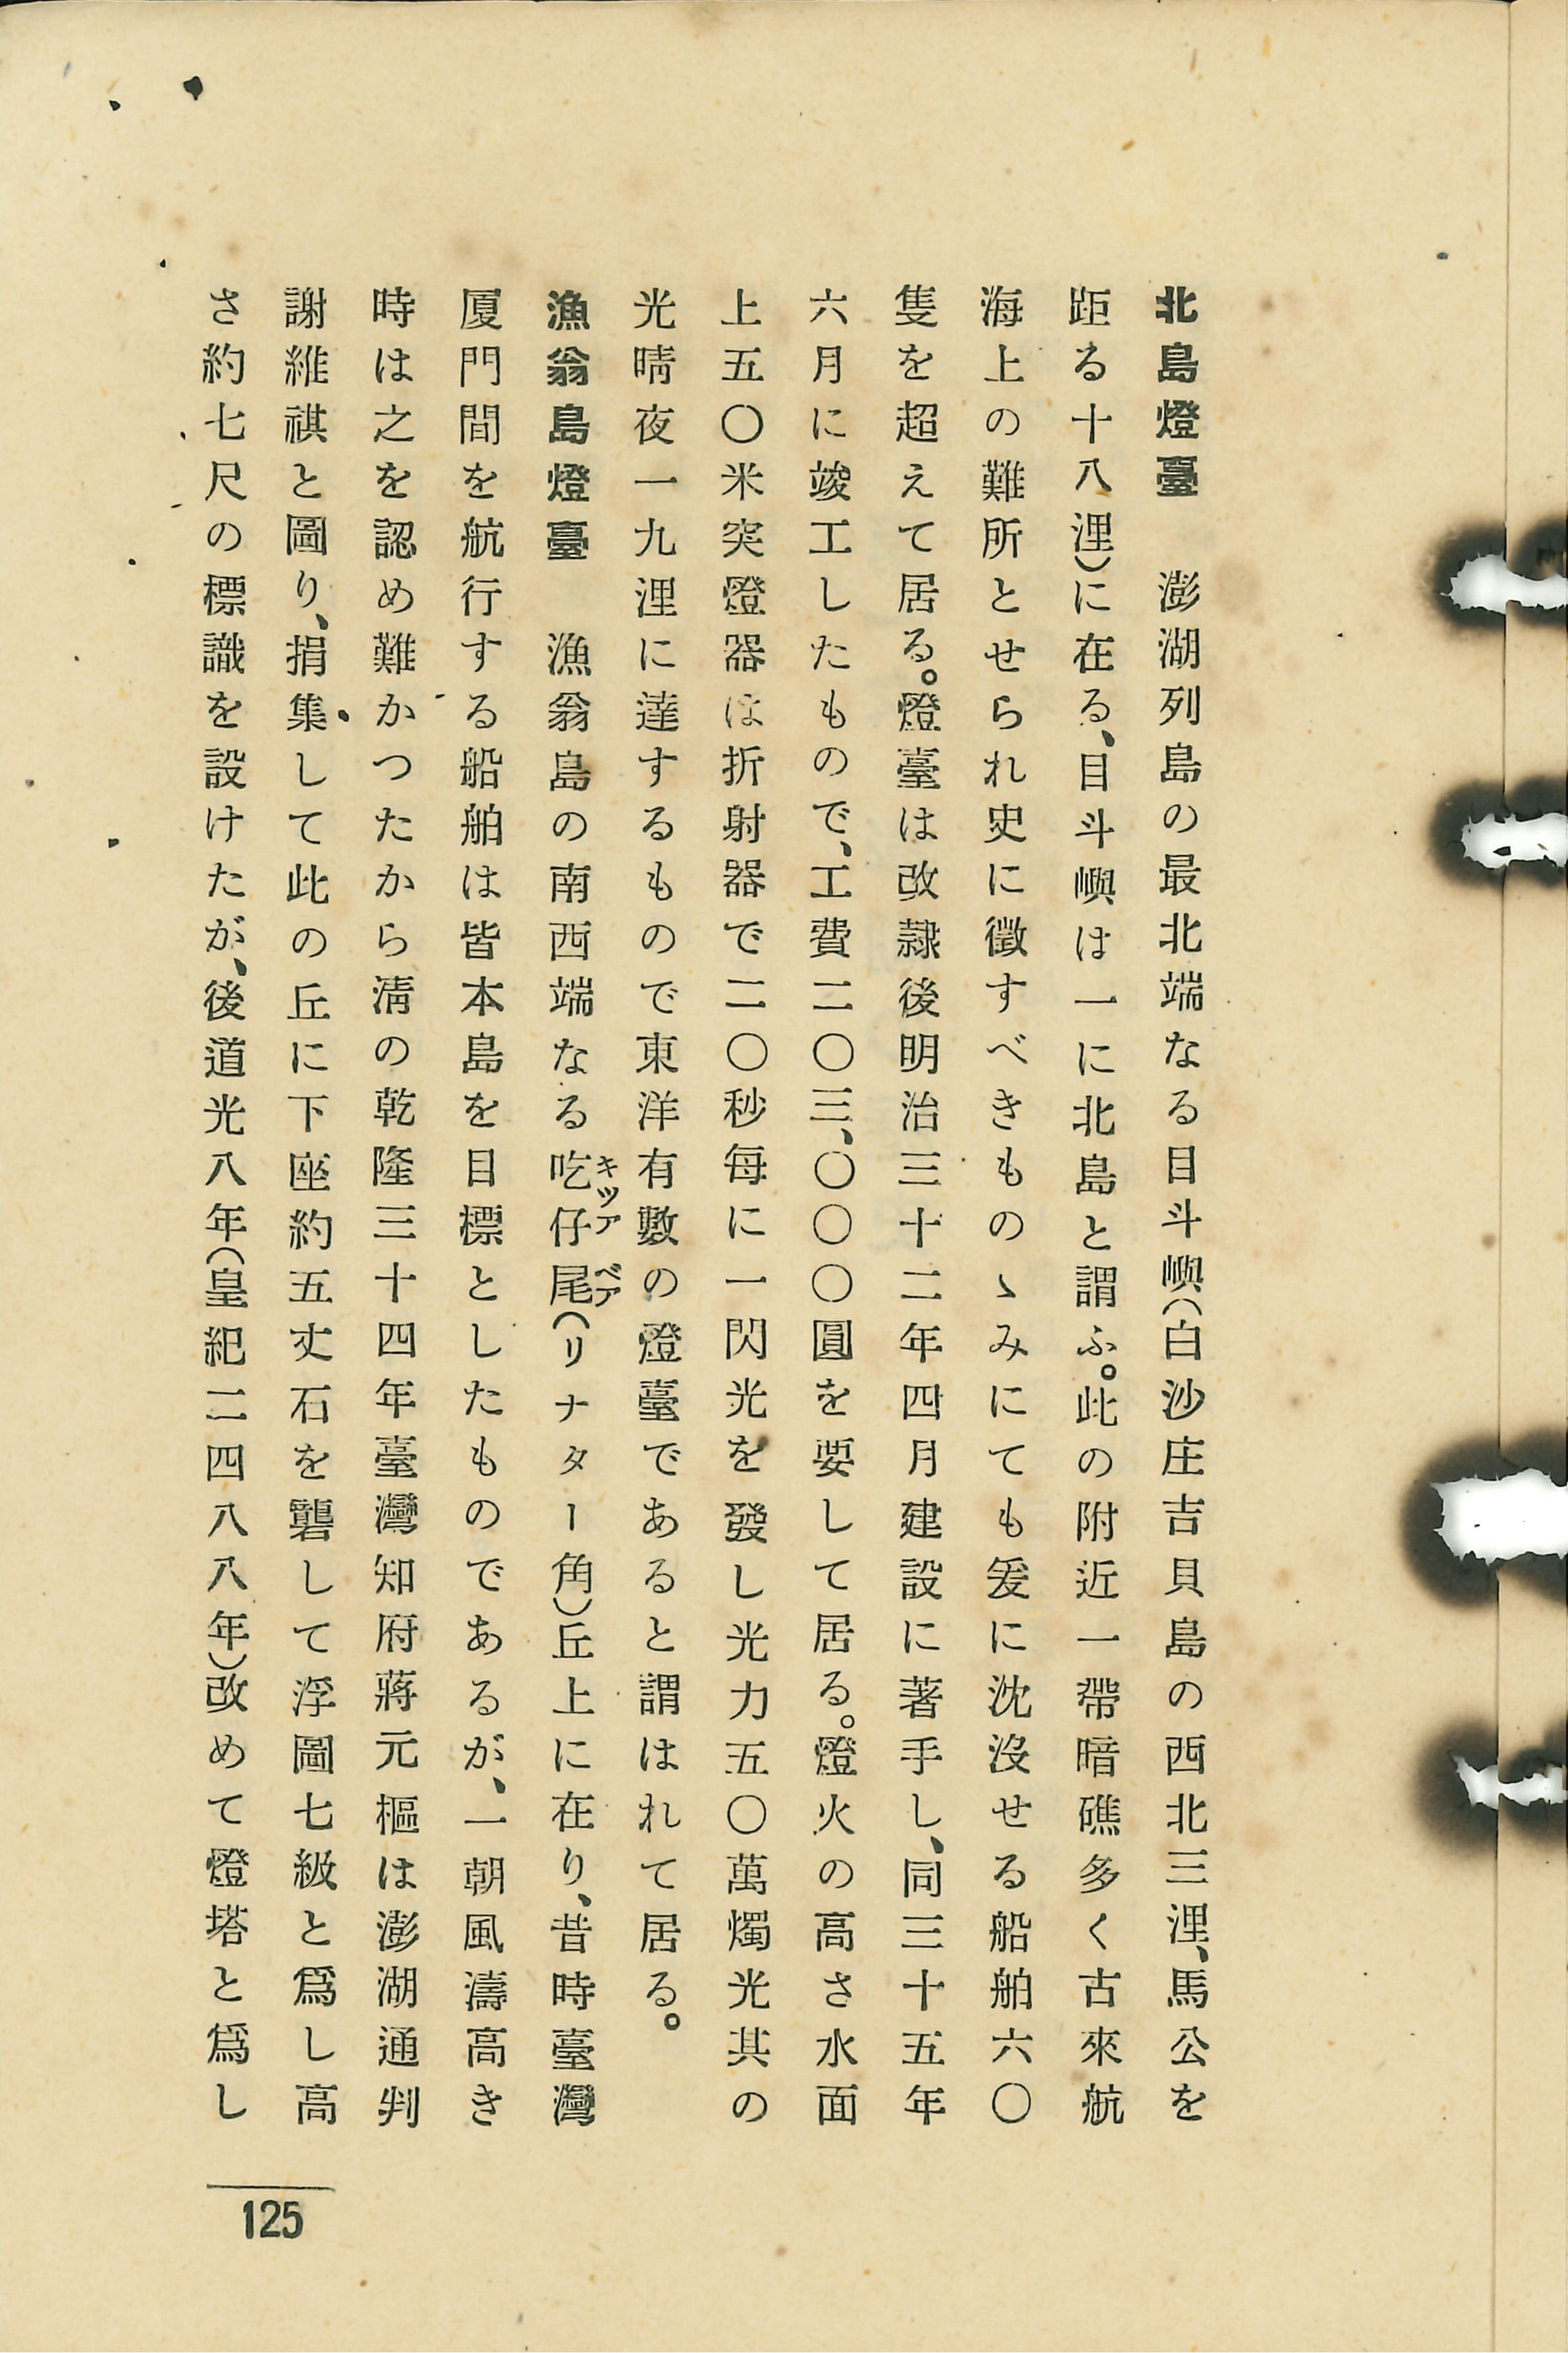 北島燈臺　澎湖列島の最北端なる目斗嶼(白沙庄吉貝島の西北三浬、馬公を
距る十八浬)に在る、目斗嶼は一に北島と謂ふ。此の附近一帶暗礁多く古來航
海上の難所とせられ史に徵すべきものゝみにても爰に沈沒せる船舶六〇
隻を超えて居る。燈臺は改隷後明治三十二年四月建設に著手し、同三十五年
六月に竣工したもので、工費二〇三、〇〇〇圓を要して居る。燈火の高さ水面
上五〇米突燈器は折射器で二〇秒每に一閃光を發し光力五〇萬燭光其の
光晴夜一九浬に達するもので東洋有數の燈臺であると謂はれて居る。
漁翁島燈臺　漁翁島の南西端なる吃仔尾(リナター角)丘上に在り、昔時臺灣
キツア ベア
厦門間を航行する船舶は皆本島を目標としたものであるが、一朝風濤高き
時は之を認め難かつたから淸の乾隆三十四年臺灣知府蔣元樞は澎湖通判
謝維祺と圖り、捐集して此の丘に下座約五丈石を礱して浮圖七級と爲し高
さ約七尺の標識を設けたが、後道光八年(皇紀二四八八年)改めて燈塔と爲し
125